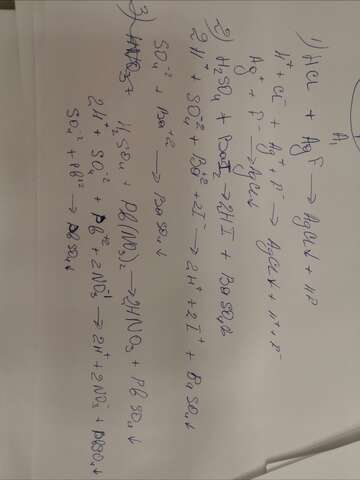 1) HCl + AgF → AgCl↓ + HF
H⁺ + Cl⁻ + Ag⁺ + F⁻ → AgCl↓ + H⁺ + F⁻
Ag⁺ + F⁻ → AgCl↓
2) H₂SO₄ + BaI₂ → 2HI + BaSO₄↓
2H⁺ + SO₄⁻² + Ba⁺² + 2I⁻ → 2H⁺ + 2I⁺ + BaSO₄↓
SO₄⁻² + Ba⁺² → BaSO₄↓
3) H₂SO₄ + Pb(NO₃)₂ → 2HNO₃ + PbSO₄↓
2H⁺ + SO₄⁻² + Pb⁺² + 2NO₃⁻¹ → 2H⁺ + 2NO₃⁻ + PbSO₄↓
SO₄⁻² + Pb⁺² → PbSO₄↓